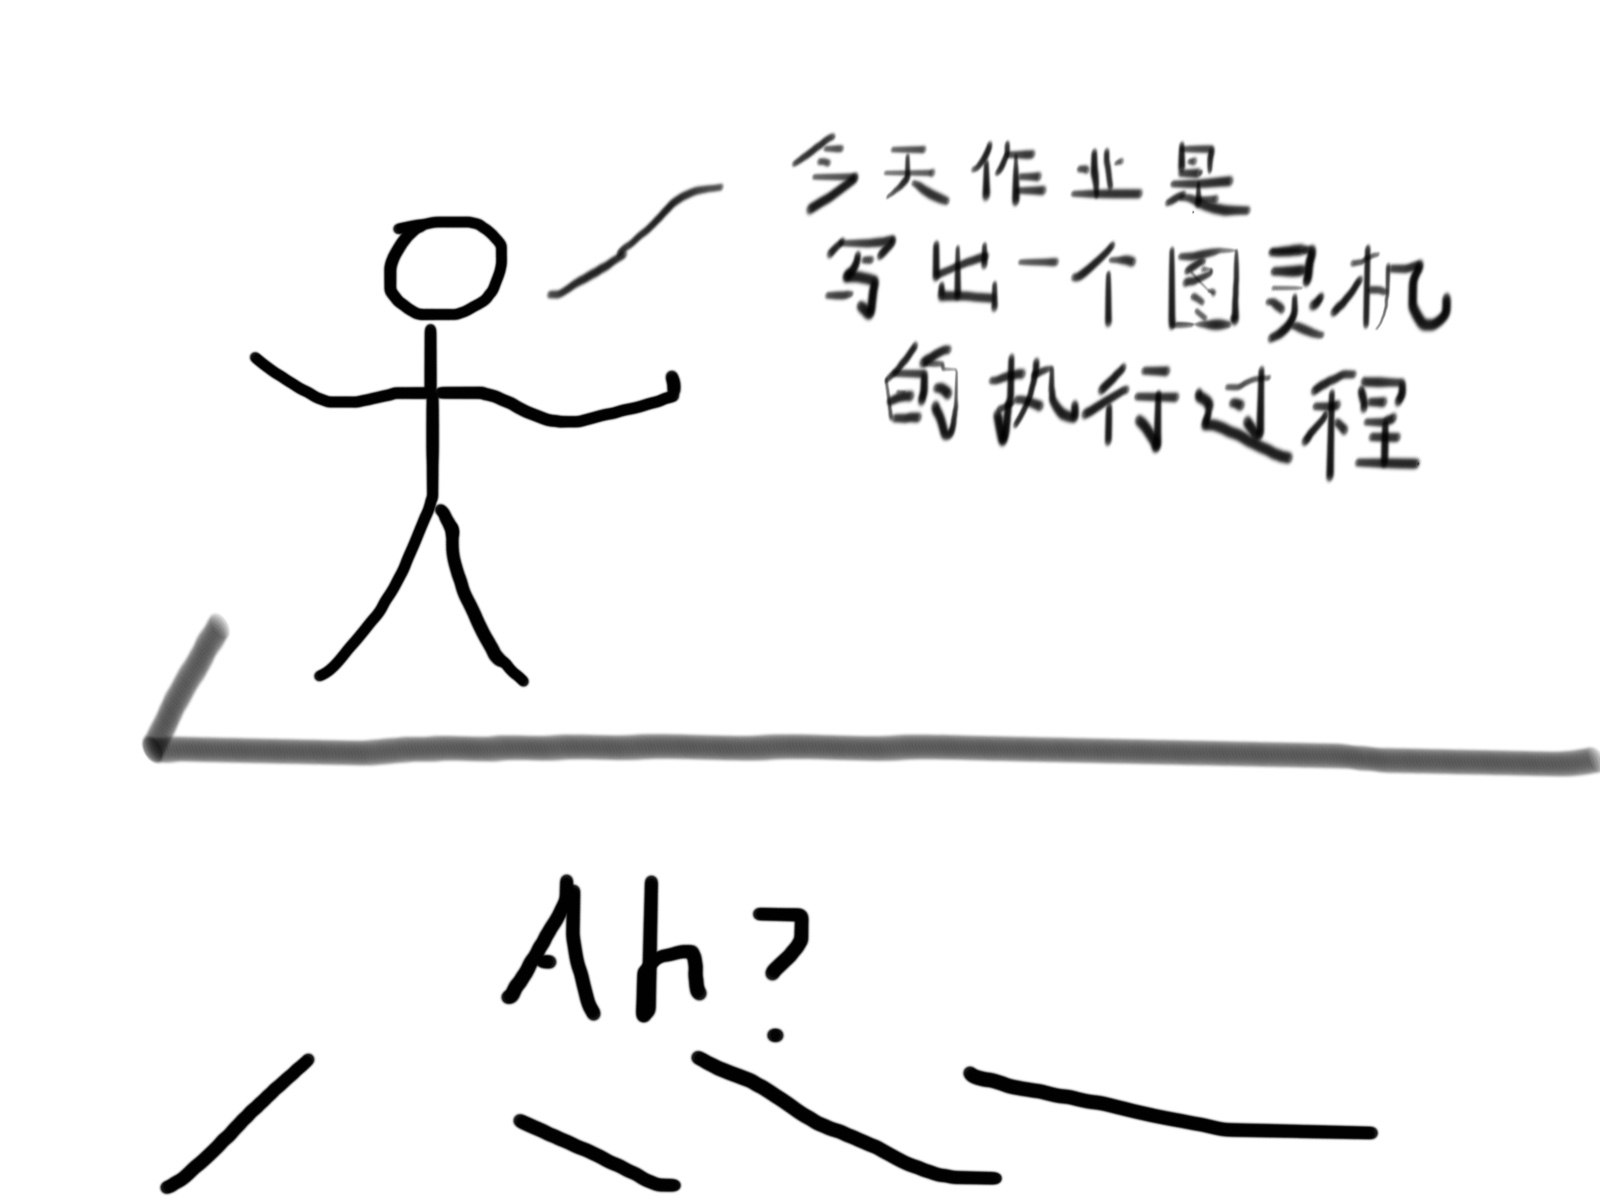 今天作业是
写出一个图灵机
的执行过程
Ah?